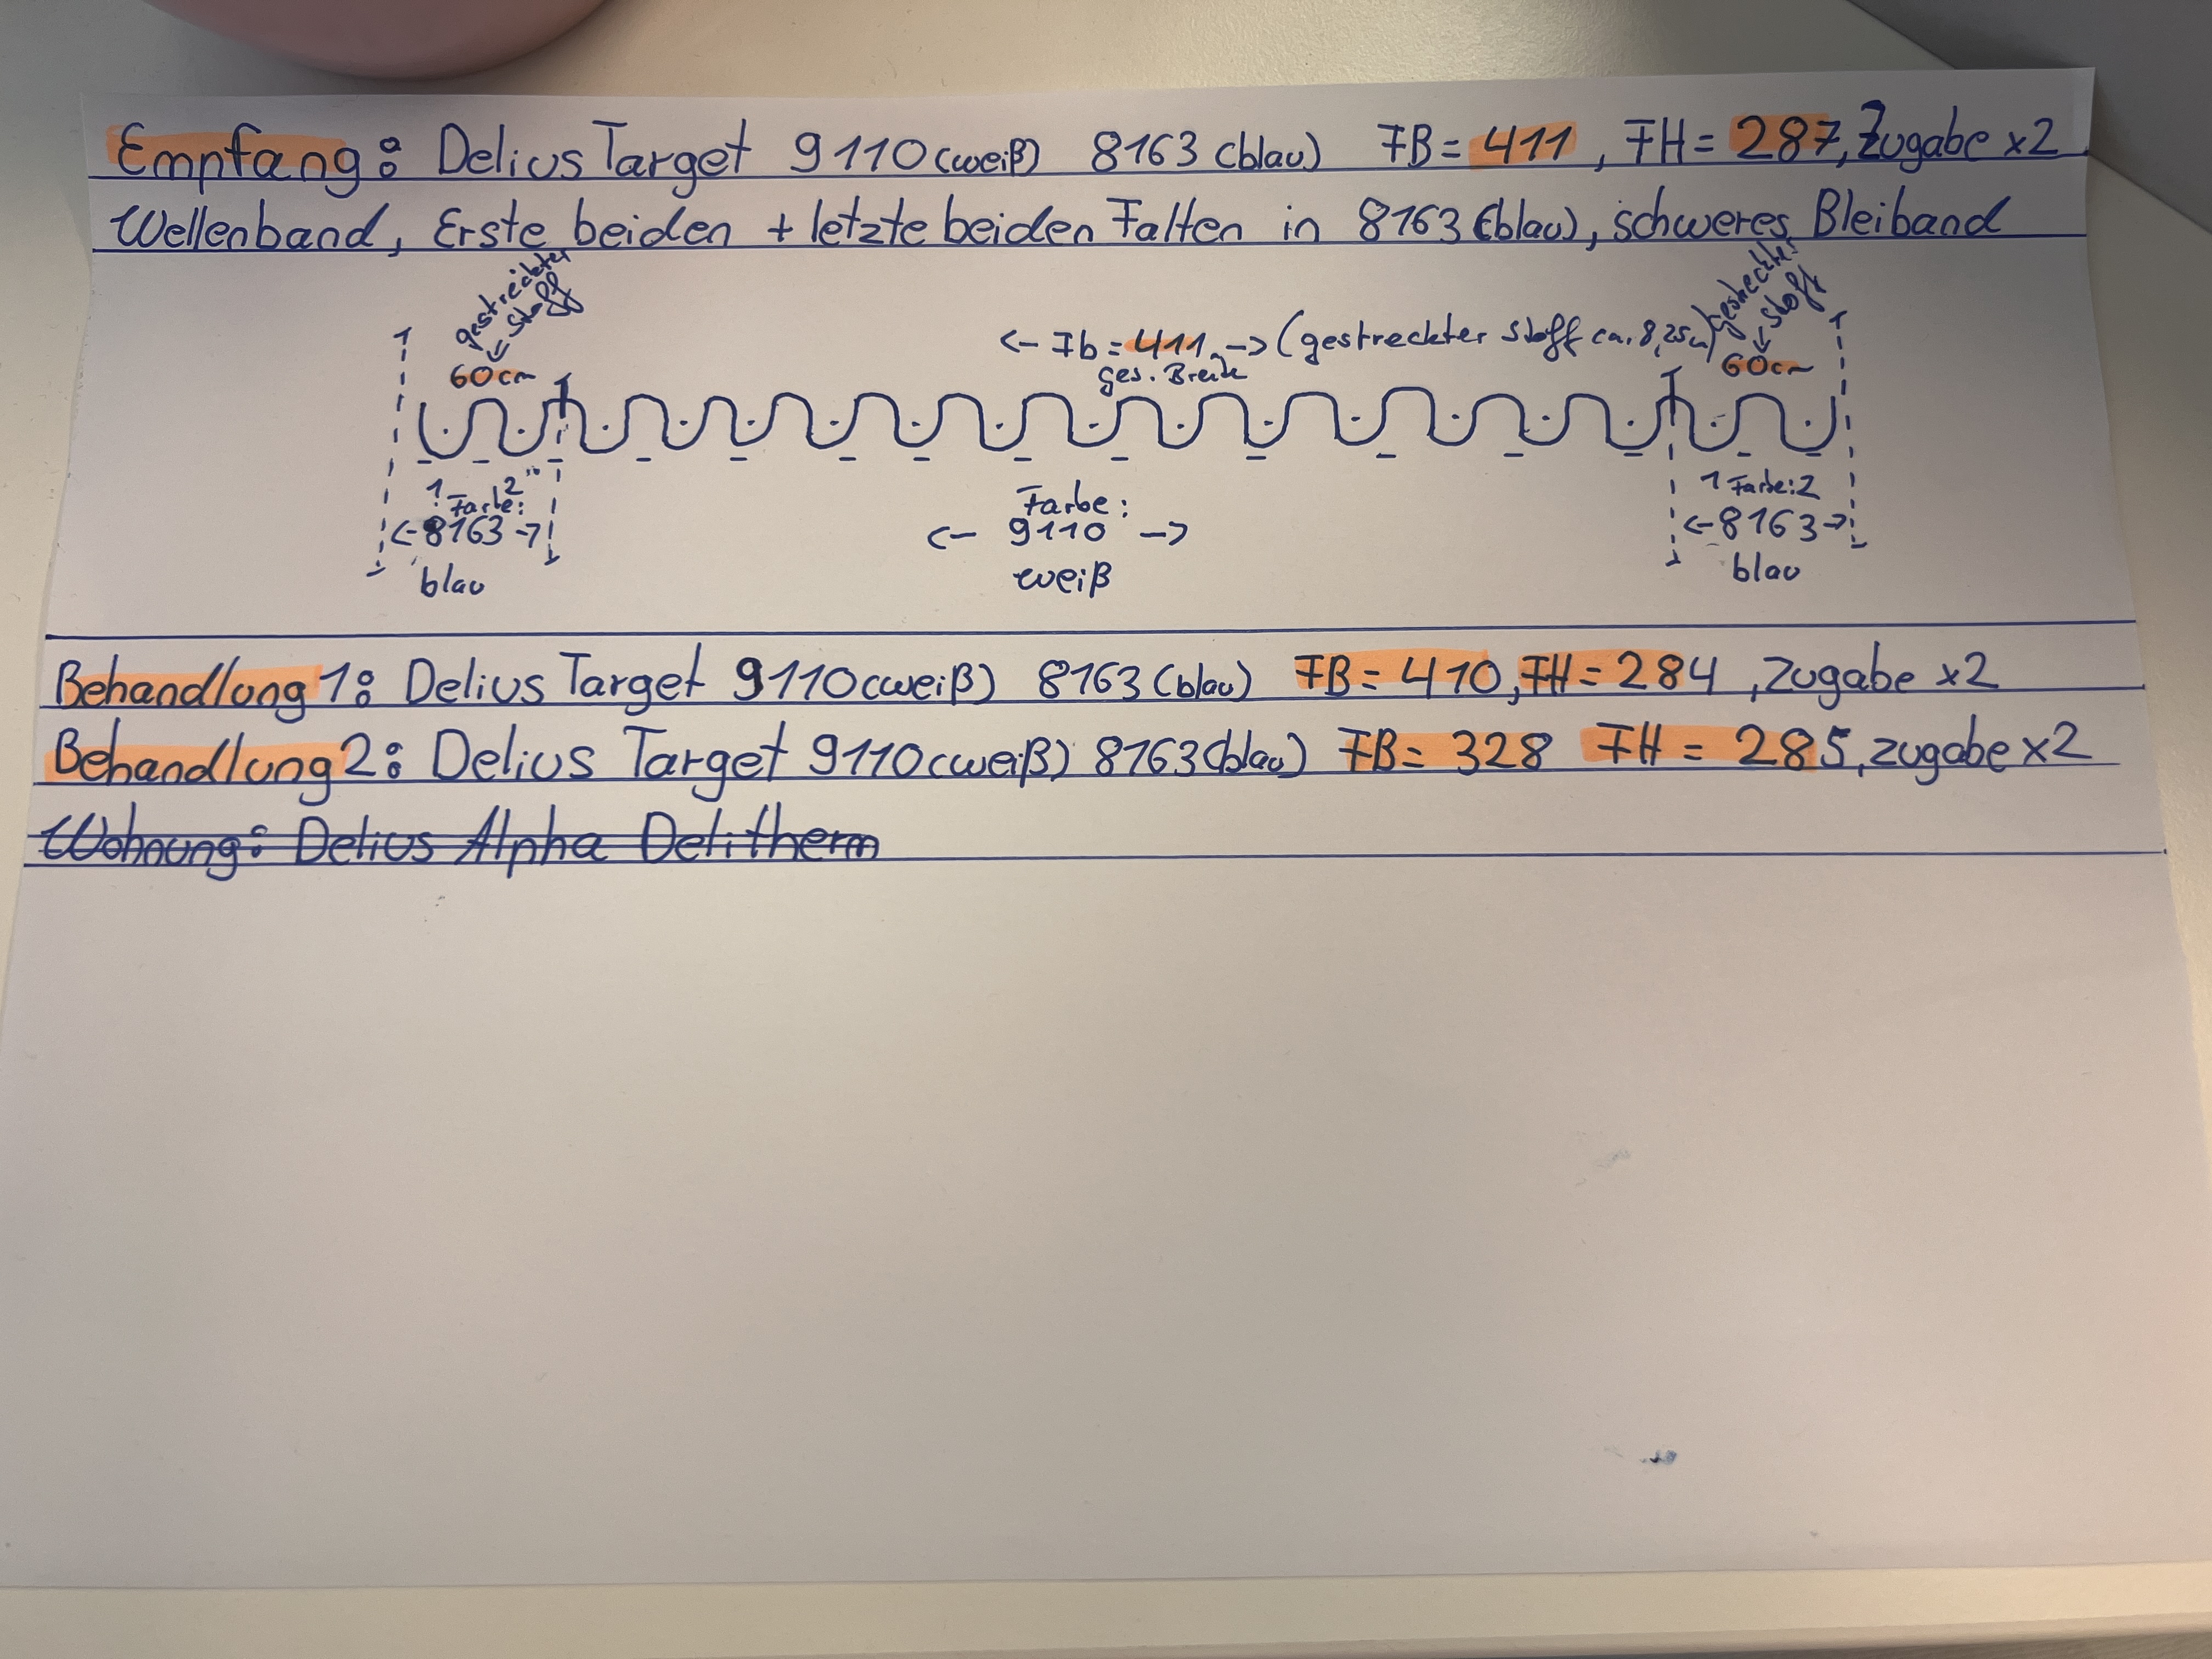 Empfang: Delius Target 9110 (weiß) 8163 (blau) FB= 411, FH= 287, Zugabe x2
Wellenband, Erste beiden + letzte beiden Falten in 8163 (blau), schweres Bleiband
gestreckter
Stoff
60cm
<- Fb = 411 -> (gestreckter Stoff ca. 8,25m)
ges. Breite
gestreckter
Stoff
60cm
1 2
Farbe:
<- 8163 ->
blau
Farbe:
<- 9110 ->
weiß
1 Farbe: 2
<- 8163 ->
blau
Behandlung 1: Delius Target 9110 (weiß) 8163 (blau) FB= 410, FH= 284, Zugabe x2
Behandlung 2: Delius Target 9110 (weiß) 8163 (blau) FB= 328 FH = 285, zugabe x2
Wohnung: Delius Alpha Delitherm